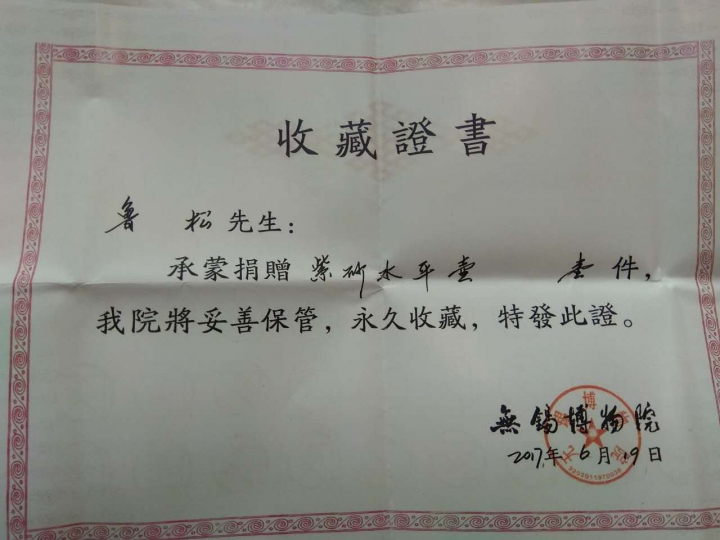 收藏證書
魯 松先生:
承蒙捐贈紫砂水平壺 壹件,
我院將妥善保管,永久收藏,特發此證。
無錫博物院
2017年6月19日